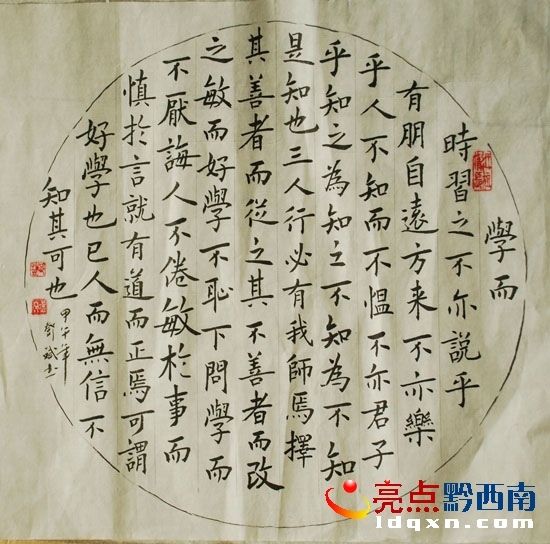 學而
時習之不亦說乎
有朋自遠方来不亦樂
乎人不知而不愠不亦君子
乎知之為知之不知為不知
是知也三人行必有我師焉擇
其善者而從之其不善者而改
之敏而好學不恥下問學而
不厭誨人不倦敏於事而
慎於言就有道而正焉可謂
好學也已人而無信不
知其可也
甲午年
亮点黔西南
ldqxn.com